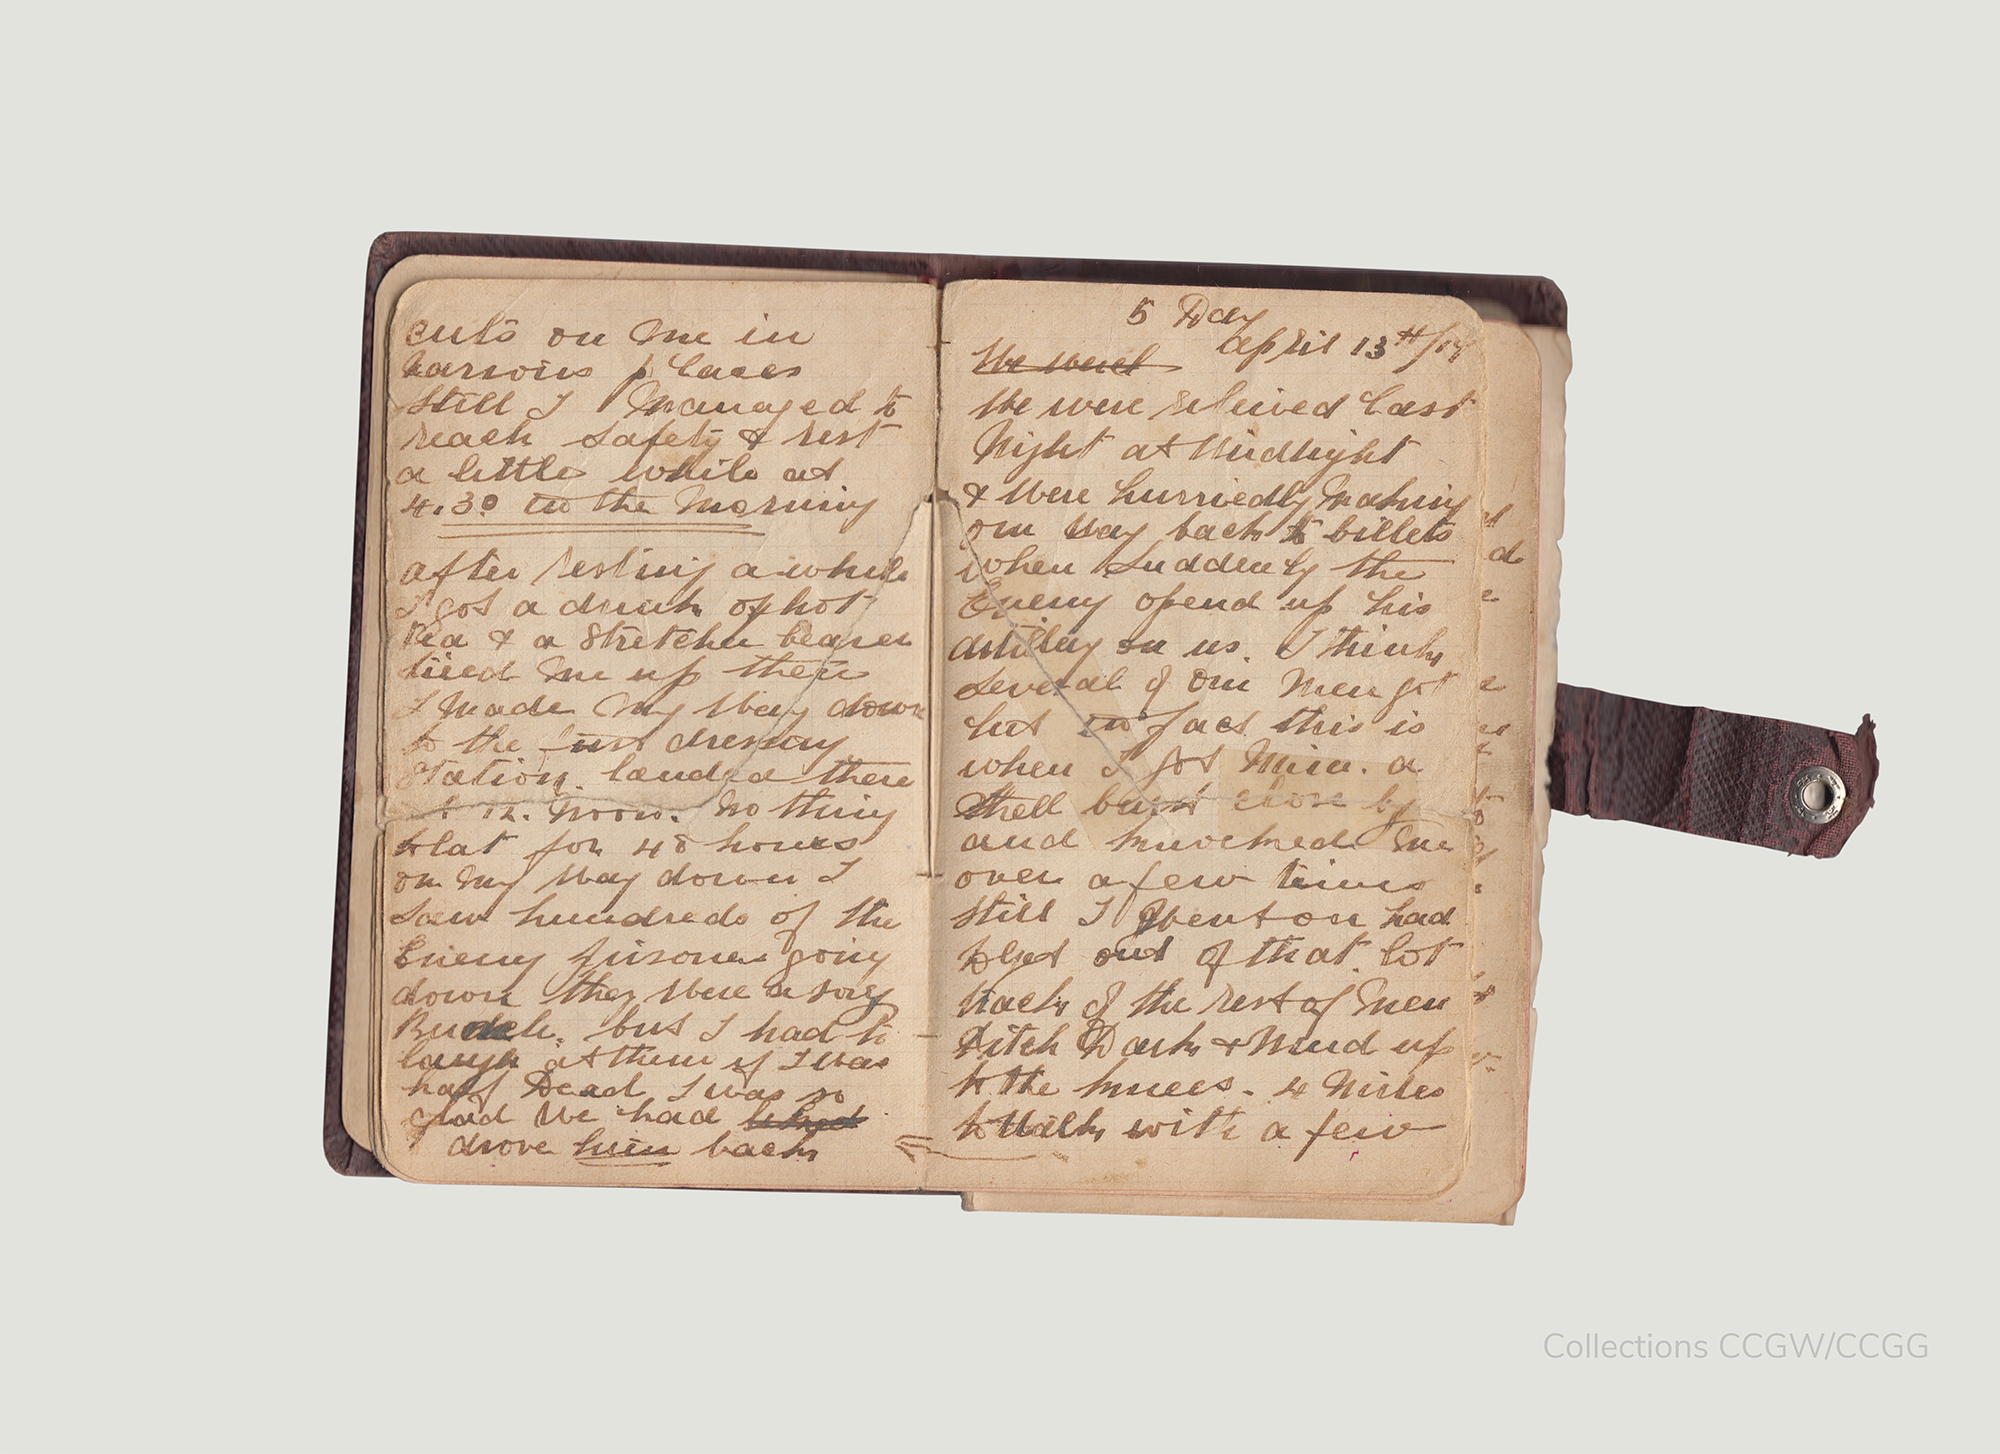 cuts on me in
various places
still I managed to
reach safety & rest
a little while at
4.30 in the morning
after resting a while
I got a drink of hot
tea & a stretcher bearer
tied me up then
I made my way down
to the first dressing
station. landed there
at 12. noon. no thing
to eat for 48 hours
on my way down I
saw hundreds of the
Enemy prisoner going
down they were a sorry
Bunch. but I had to
laugh at them if I was
half Dead I was so
glad we had
drove him back
5 Day
April 13th/17
We were
We were releived last
Night at Midnight
& were hurriedly making
our way back to billets
when suddenly the
Enemy opend up his
artillery on us. I think
several of our men got
hit in fact this is
when I got mine. a
shell burst close by
and knocked me
over a few times
still I went on had
to get out of that lot
track of the rest of men
Pitch Dark & mud up
to the knees. 4 miles
to walk with a few
Collections CCGW/CCGG